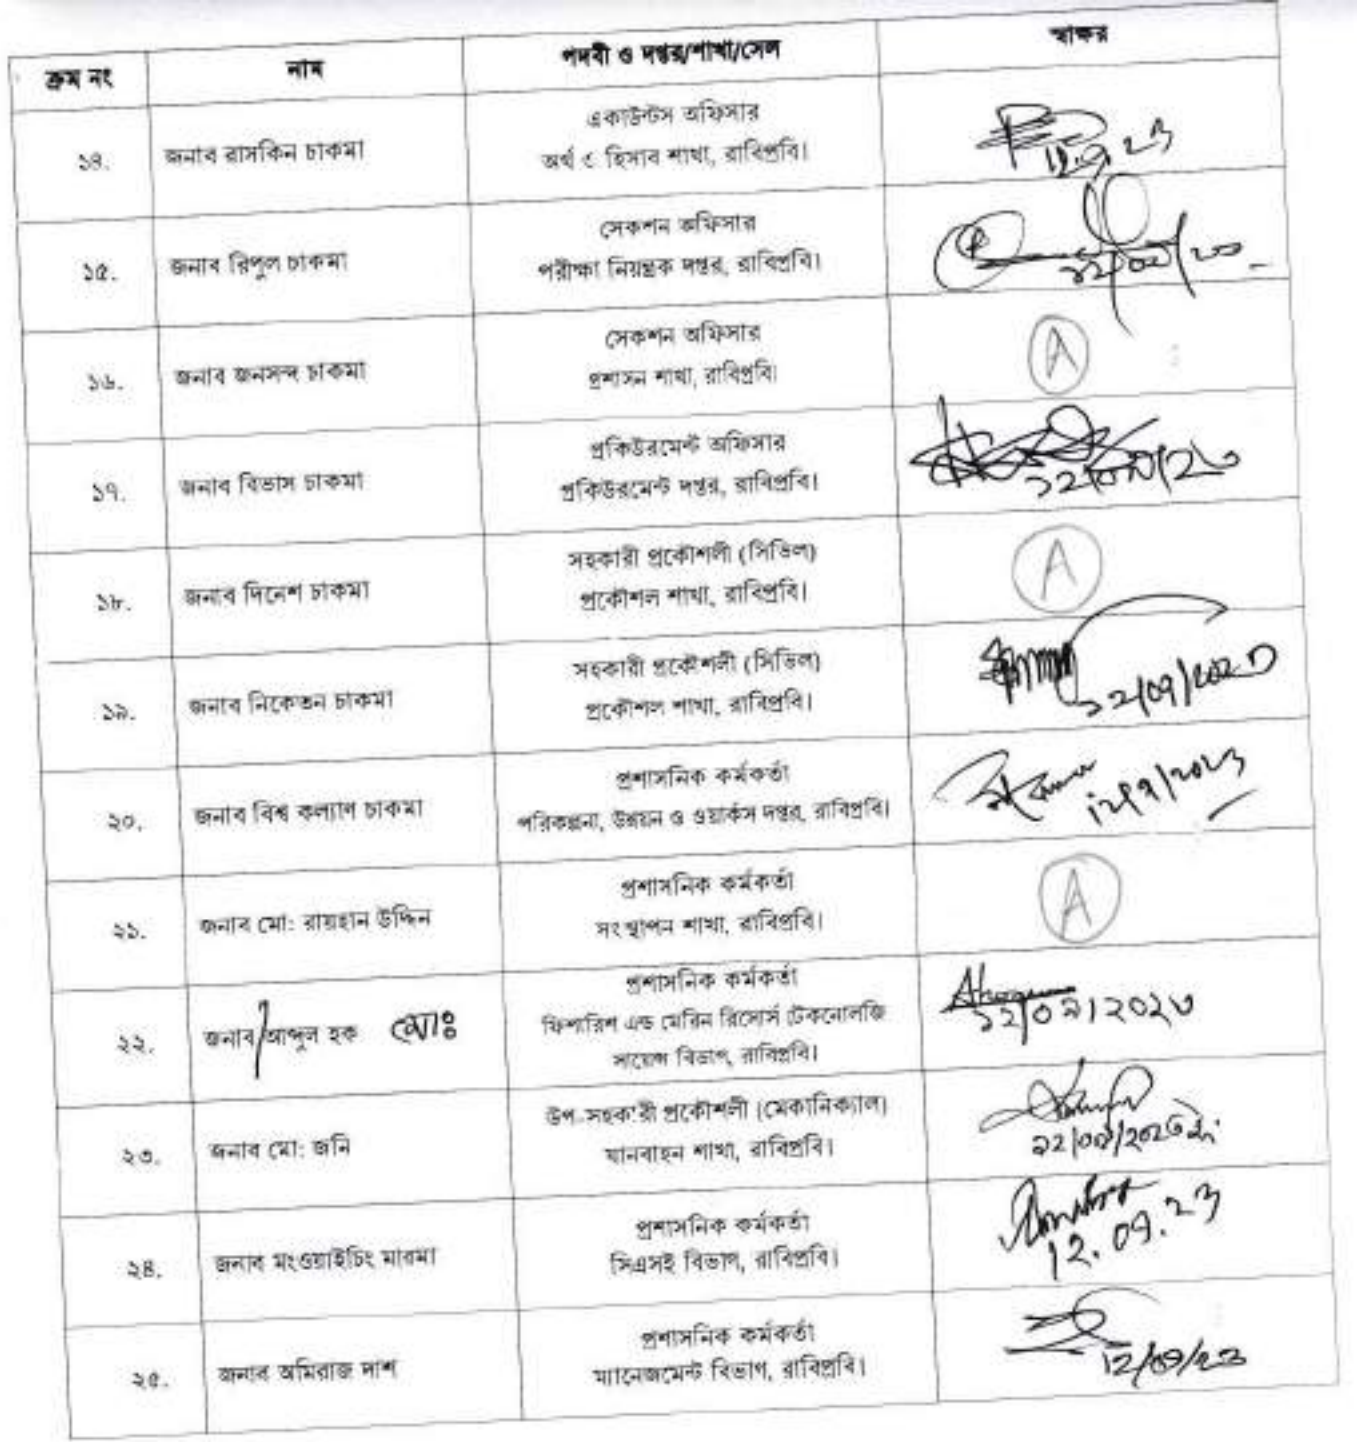 ক্রম নং
নাম
পদবী ও দপ্তর/শাখা/সেল
স্বাক্ষর
১৪.
জনাব রাসকিন চাকমা
একাউন্টস অফিসার
অর্থ ও হিসাব শাখা, রাবিপ্রবি।
12.9.23
১৫.
জনাব রিপুল চাকমা
সেকশন অফিসার
পরীক্ষা নিয়ন্ত্রক দপ্তর, রাবিপ্রবি।
১৬.
জনাব জনসন্দ চাকমা
সেকশন অফিসার
প্রশাসন শাখা, রাবিপ্রবি।
A
১৭.
জনাব বিভাস চাকমা
প্রকিউরমেন্ট অফিসার
প্রকিউরমেন্ট দপ্তর, রাবিপ্রবি।
১২/০৯/২৩
১৮.
জনাব দিনেশ চাকমা
সহকারী প্রকৌশলী (সিভিল)
প্রকৌশল শাখা, রাবিপ্রবি।
A
১৯.
জনাব নিকেতন চাকমা
সহকারী প্রকৌশলী (সিভিল)
প্রকৌশল শাখা, রাবিপ্রবি।
১২/০৯/২০২৩
২০.
জনাব বিশ্ব কল্যাণ চাকমা
প্রশাসনিক কর্মকর্তা
পরিকল্পনা, উন্নয়ন ও ওয়ার্কস দপ্তর, রাবিপ্রবি।
12/9/2023
২১.
জনাব মো: রায়হান উদ্দিন
প্রশাসনিক কর্মকর্তা
সংস্থাপন শাখা, রাবিপ্রবি।
A
২২.
জনাব/আব্দুল হক মোঃ
প্রশাসনিক কর্মকর্তা
ফিশারিশ এন্ড মেরিন রিসোর্স টেকনোলজি
সায়েন্স বিভাগ, রাবিপ্রবি।
১২/০৯/২০২৩
২৩.
জনাব মো: জনি
উপ-সহকারী প্রকৌশলী (মেকানিক্যাল)
যানবাহন শাখা, রাবিপ্রবি।
১২/০৯/২০২৩ খ্রি.
২৪.
জনাব মংওয়াইচিং মারমা
প্রশাসনিক কর্মকর্তা
সিএসই বিভাগ, রাবিপ্রবি।
12.09.23
২৫.
জনাব অমিরাজ দাশ
প্রশাসনিক কর্মকর্তা
ম্যানেজমেন্ট বিভাগ, রাবিপ্রবি।
12/09/23